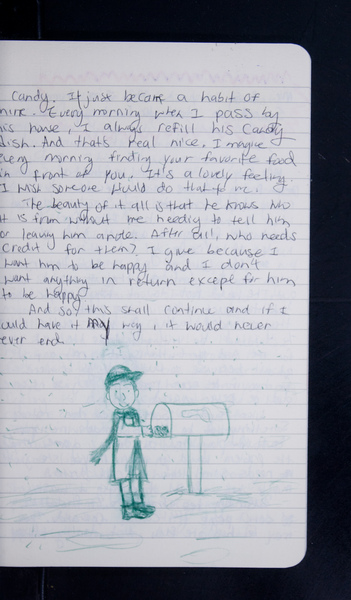 candy. It just became a habit of
mine. Every morning when I pass by
his house, I always refill his candy
dish. And that's real nice. Imagine
every morning finding your favorite food
in front of you. It's a lovely feeling.
I wish someone would do that to me.
The beauty of it all is that he knows who
it is from without me needing to tell him
or leaving him a note. After all, who needs
credit for them? I give because I
want him to be happy and I don't
want anything in return except for him
to be happy.
And so, this shall continue and if I
could have it my way, it would never
ever end.